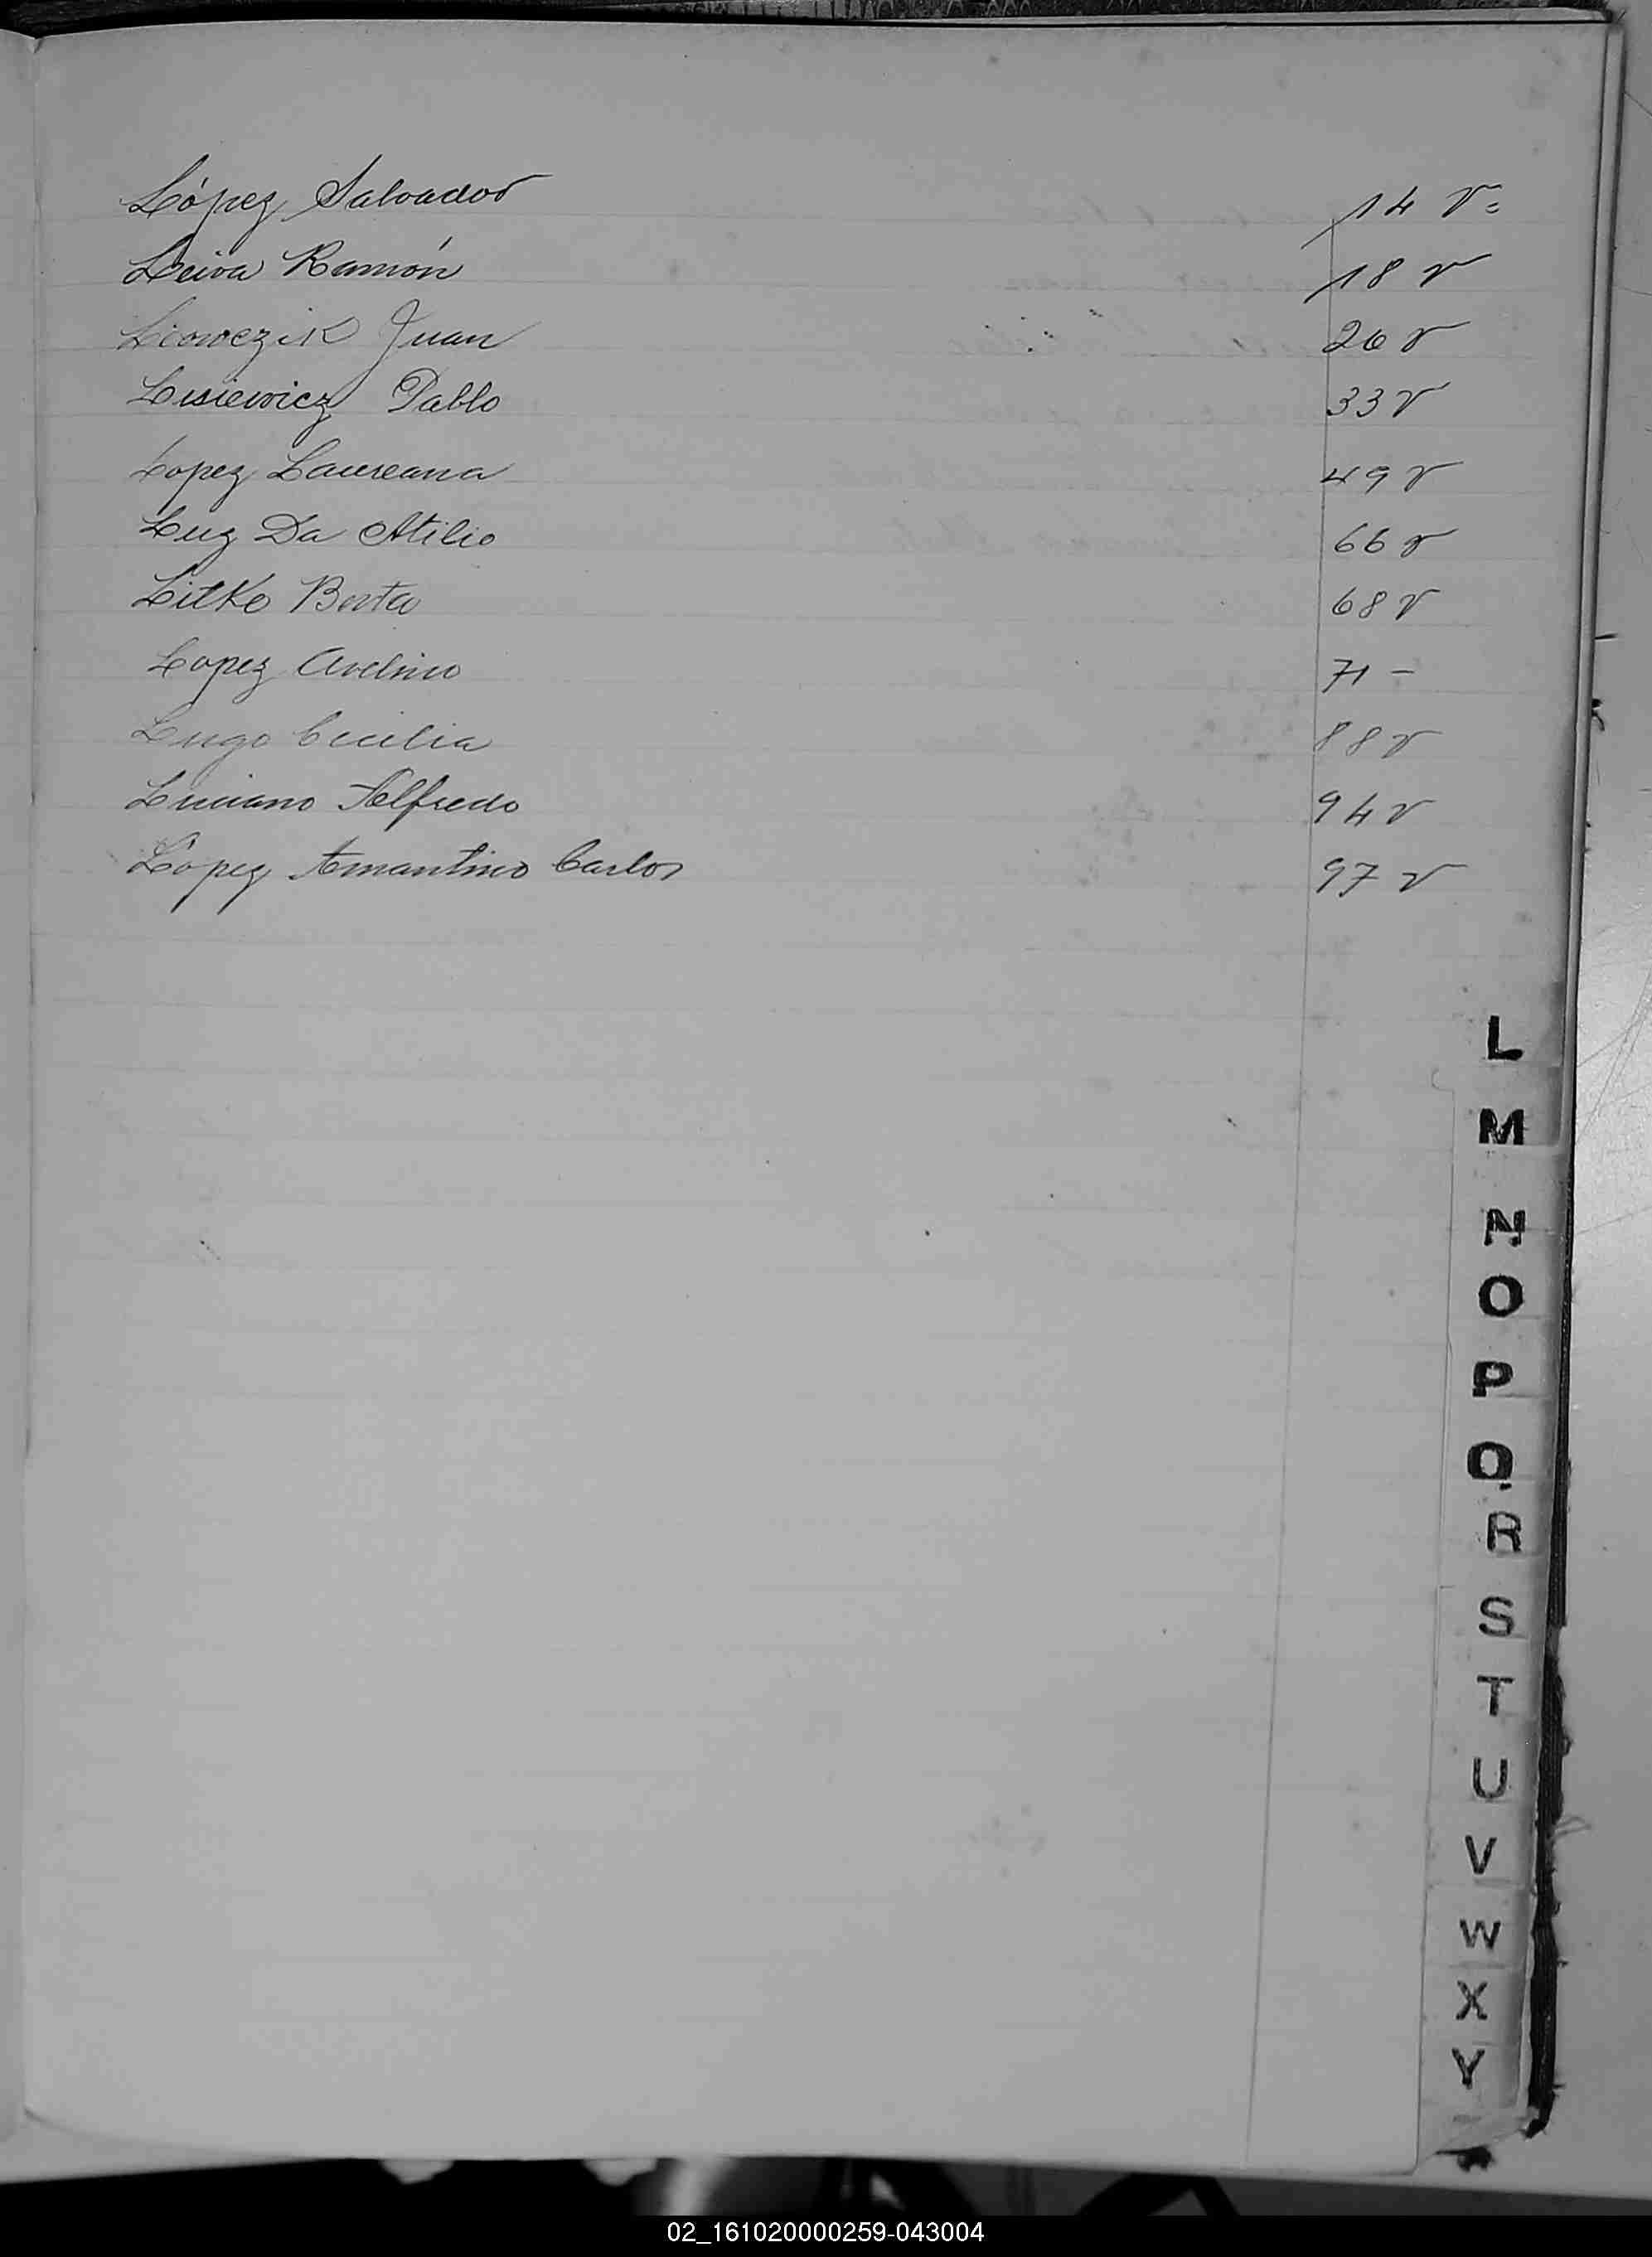 López Salvador 14 v=
Leiva Ramón 18 v
Liowczik Juan 26 v
Lisiewicz Pablo 33 v
Lopez Laureana 49 v
Luz Da Atilio 66 v
Litke Berta 68 v
Lopez Avelino 71 -
Lugo Cecilia 88 v
Luciano Alfredo 94 v
López Amantino Carlos 97 v
L
M
N
O
P
Q
R
S
T
U
V
W
X
Y
02_161020000259-043004